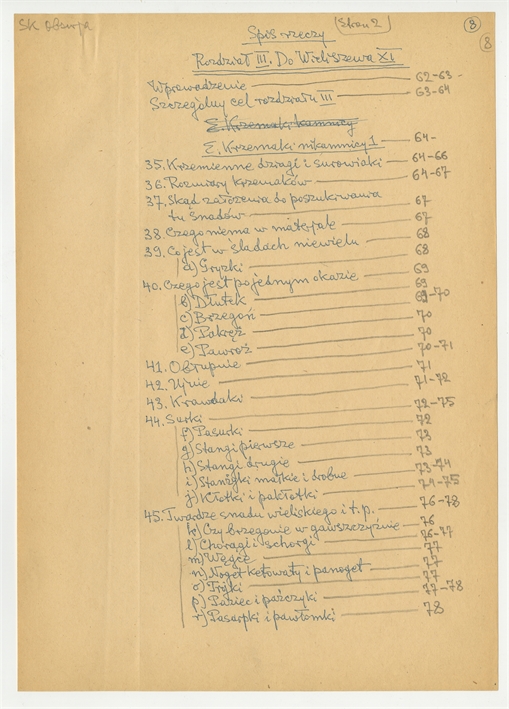 SK Obserwa
Spis rzeczy
(Stron 2)
8
8
Rozdział III. Do Wieliszewa XI
Wprowadzenie 62-63-
Szczególny cel rozdziału III 63-64
E. Krzemaki kamnicy
E. Krzemaki nikamnicy 1 64-
35. Krzemienne dziagi i surowiaki 64-66
36. Rozmiary krzemaków 64-67
37. Skąd założenia do poszukiwania
tu śnadów 67
38. Czego niema w materjale 67
39. Co jest w śladach niewielu 68
a) Gryzki 68
40. Czego jest po jednym okazie 69
b) Dłutek 69
c) Brzegoń 69-70
d) Pakręż 70
e) Pawroż 70
41. Obłupnie 70-71
42. Ujnie 71
43. Krawdaki 71-72
44. Surki 72-75
f) Pasurki 72
g) Stangi pierwsze 73
h) Stangi drugie 73
i) Stanżgki małkie i drobne 73-74
j) Kłotki i pakłotki 74-75
45. Twardze śnadu wieliskiego i t. p. 76-78
k) Czy brzegonie w gawszczyźnie 76
l) Chorągi i schorgi 76-77
m) Węgce 77
n) Noget kełowaty i panoget 77
o) Tryki 77
p) Paziec i paźczyki 77-78
r) Pasarpki i pawłomki 78